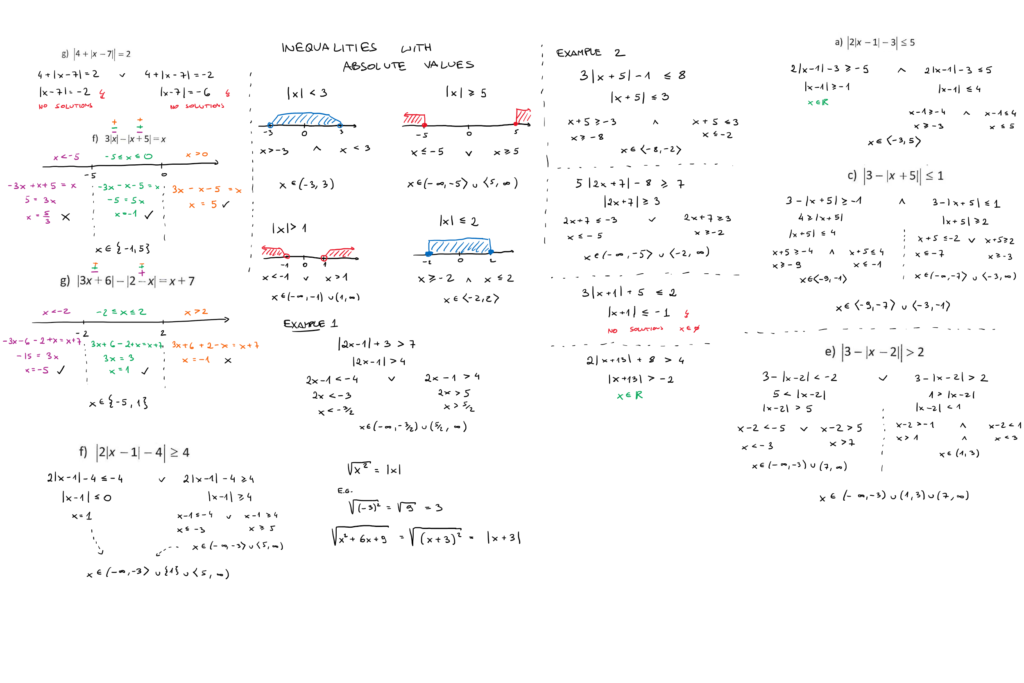 g) |4+|x−7||=2
4+|x-7|=2 v 4+|x-7|=-2
|x-7|=-2 ↯ |x-7|=-6 ↯
NO SOLUTIONS NO SOLUTIONS
f) 3|x|−|x+5|=x
x<-5 -5≤x≤0 x>0
-5 0
-3x+x+5=x -3x-x-5=x 3x-x-5=x
5=3x -5=5x x=5 ✓
x=5/3 × x=-1 ✓
x∈{-1,5}
g) |3x+6|−|2−x|=x+7
x<-2 -2≤x≤2 x>2
-2 2
-3x-6-2+x=x+7 3x+6-2+x=x+7 3x+6+2-x=x+7
-15=3x 3x=3 x=-1 ×
x=-5 ✓ x=1 ✓
x∈{-5,1}
f) |2|x−1|−4|≥4
2|x-1|-4≤-4 v 2|x-1|-4≥4
|x-1|≤0 |x-1|≥4
x=1 x-1≤-4 v x-1≥4
x≤-3 x≥5
x∈(-∞,-3⟩∪⟨5,∞)
x∈(-∞,-3⟩∪{1}∪⟨5,∞)
INEQUALITIES WITH
ABSOLUTE VALUES
|x|<3 |x|≥5
-3 0 3 -5 0 5
x>-3 ∧ x<3 x≤-5 v x≥5
x∈(-3,3) x∈(-∞,-5⟩∪⟨5,∞)
|x|>1 |x|≤2
-1 0 1 -2 0 2
x<-1 v x>1 x≥-2 ∧ x≤2
x∈(-∞,-1)∪(1,∞) x∈⟨-2,2⟩
EXAMPLE 1
|2x-1|+3>7
|2x-1|>4
2x-1<-4 v 2x-1>4
2x<-3 2x>5
x<-3/2 x>5/2
x∈(-∞,-3/2)∪(5/2,∞)
√x² = |x|
E.G.
√(-3)² = √9 = 3
√x²+6x+9 = √(x+3)² = |x+3|
EXAMPLE 2
3|x+5|-1≤8
|x+5|≤3
x+5≥-3 ∧ x+5≤3
x≥-8 x≤-2
x∈⟨-8,-2⟩
5|2x+7|-8≥7
|2x+7|≥3
2x+7≤-3 v 2x+7≥3
x≤-5 x≥-2
x∈(-∞,-5⟩∪⟨-2,∞)
3|x+1|+5≤2
|x+1|≤-1 ↯
NO SOLUTIONS x∈∅
2|x+13|+8>4
|x+13|>-2
x∈R
a) |2|x−1|−3|≤5
2|x-1|-3≥-5 ∧ 2|x-1|-3≤5
|x-1|≥-1 |x-1|≤4
x∈R x-1≥-4 ∧ x-1≤4
x≥-3 x≤5
x∈⟨-3,5⟩
c) |3−|x+5||≤1
3-|x+5|≥-1 ∧ 3-|x+5|≤1
4≥|x+5| |x+5|≥2
|x+5|≤4 x+5≤-2 v x+5≥2
x+5≥-4 ∧ x+5≤4 x≤-7 x≥-3
x≥-9 x≤-1 x∈(-∞,-7⟩∪⟨-3,∞)
x∈⟨-9,-1⟩
x∈⟨-9,-7⟩∪⟨-3,-1⟩
e) |3−|x−2||>2
3-|x-2|<-2 v 3-|x-2|>2
5<|x-2| 1>|x-2|
|x-2|>5 |x-2|<1
x-2<-5 v x-2>5 x-2>-1 ∧ x-2<1
x<-3 x>7 x>1 ∧ x<3
x∈(-∞,-3)∪(7,∞) x∈(1,3)
x∈(-∞,-3)∪(1,3)∪(7,∞)